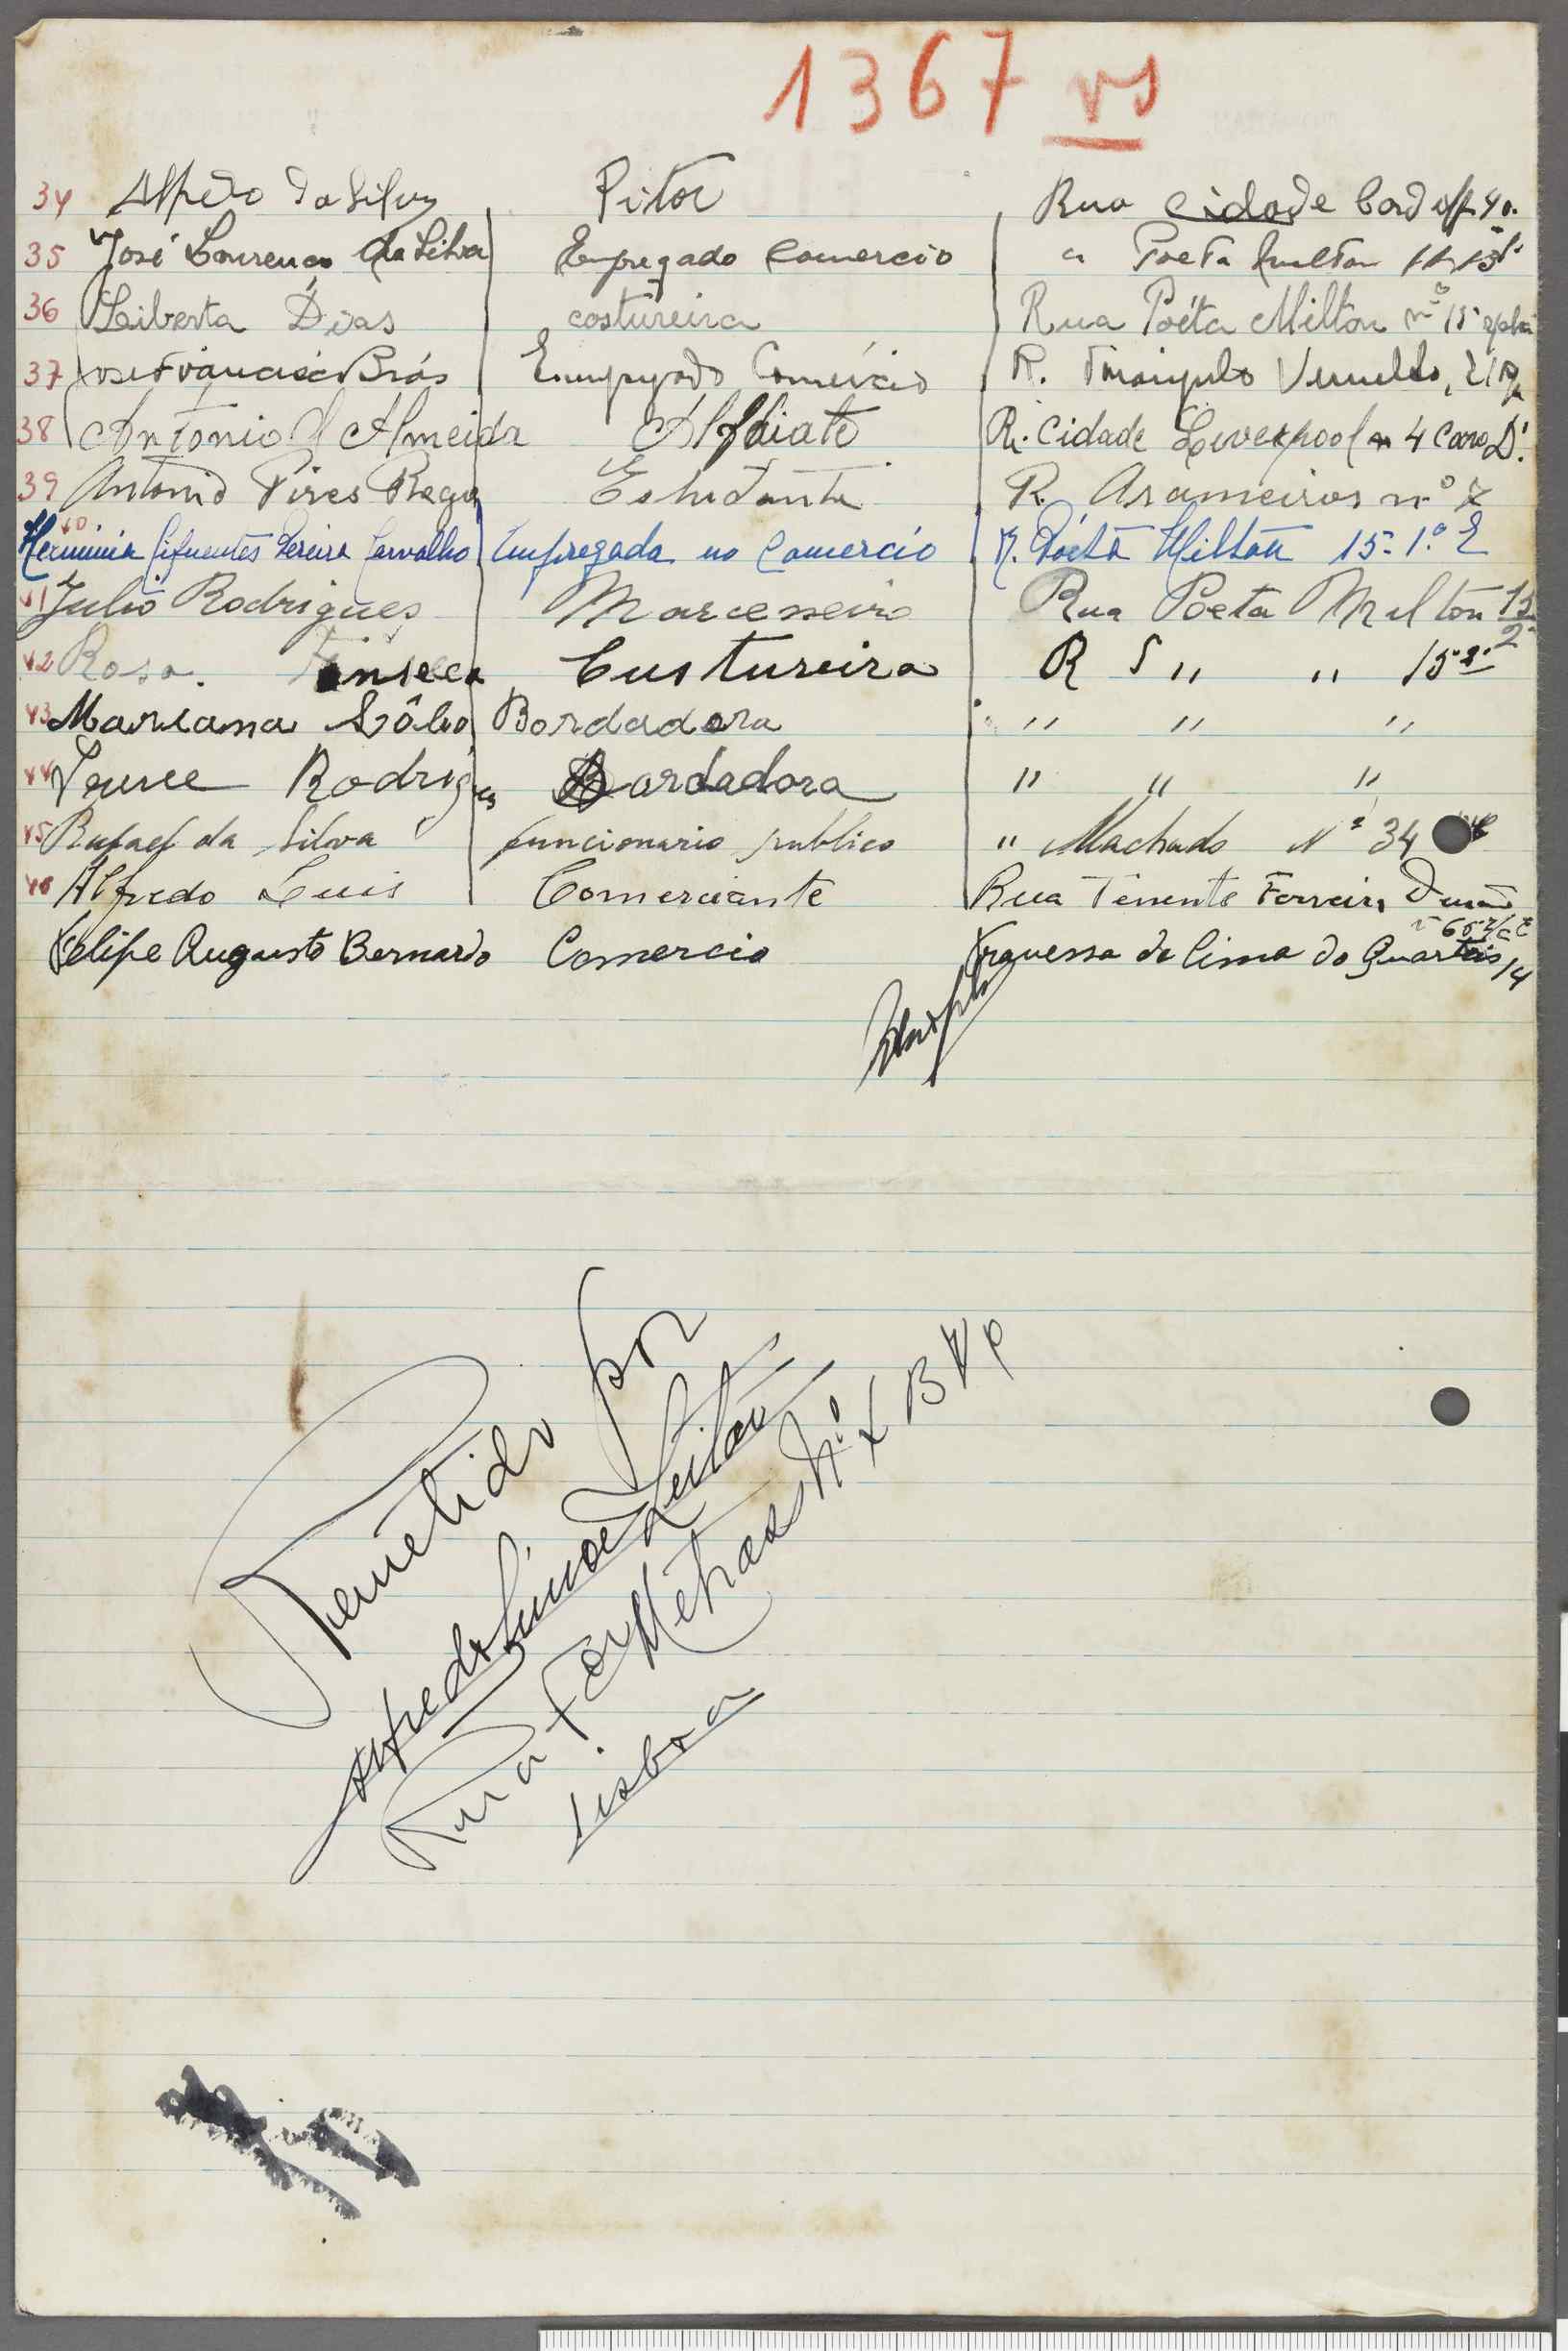 1367 vs
34 Alfredo da Silva Pitor Rua Cidade Cardiff 40.
35 José Lourenço da Silva Empregado Comercio " Poeta Milton 15
36 Liberta Dias costureira Rua Poéta Milton nº 15
37 José Francisco Brás Empregado Comércio R.
38 Antonio d'Almeida Alfaiate R. Cidade Liverpool 4 Cave D.
39 Antonio Pires Rego Estudante R. Arameiros nº 7
40 Herminia Cifuentes Pereira Carvalho Empregada no Comercio R. Poéta Milton 15-1.º E
41 Julio Rodrigues Marceneiro Rua Poeta Milton 15 2º
42 Rosa Fonseca Custureira R " " 15-2º
43 Mariana Lôbo Bordadora " " "
44 Rodrigues Bordadora " " "
45 Rafael da Silva funcionario publico " Machado Nº 34
46 Alfredo Luis Comerciante Rua Tenente Ferreira Durão
nº 65 r/c E
Felipe Augusto Bernardo Comercio Travessa de Cima do Quarteis 14
Remetido por
Alfredo Leitão
Rua Nº X B
Lisboa